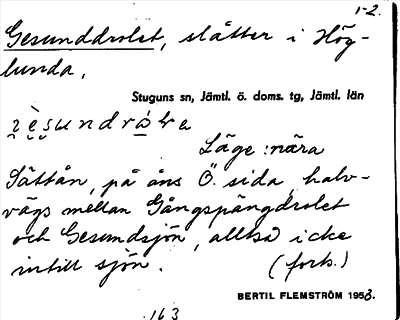 1-2.
Gesunddrolet, slåtter i Hög-
lunda.
Stuguns sn, Jämtl. ö. doms. tg, Jämtl. län
Läge: nära
Sättån, på åns Ö. sida, halv-
vägs mellan Gångspångdrolet
och Gesundsjön, alltså icke
intill sjön. (forts.)
BERTIL FLEMSTRÖM 1953.
163